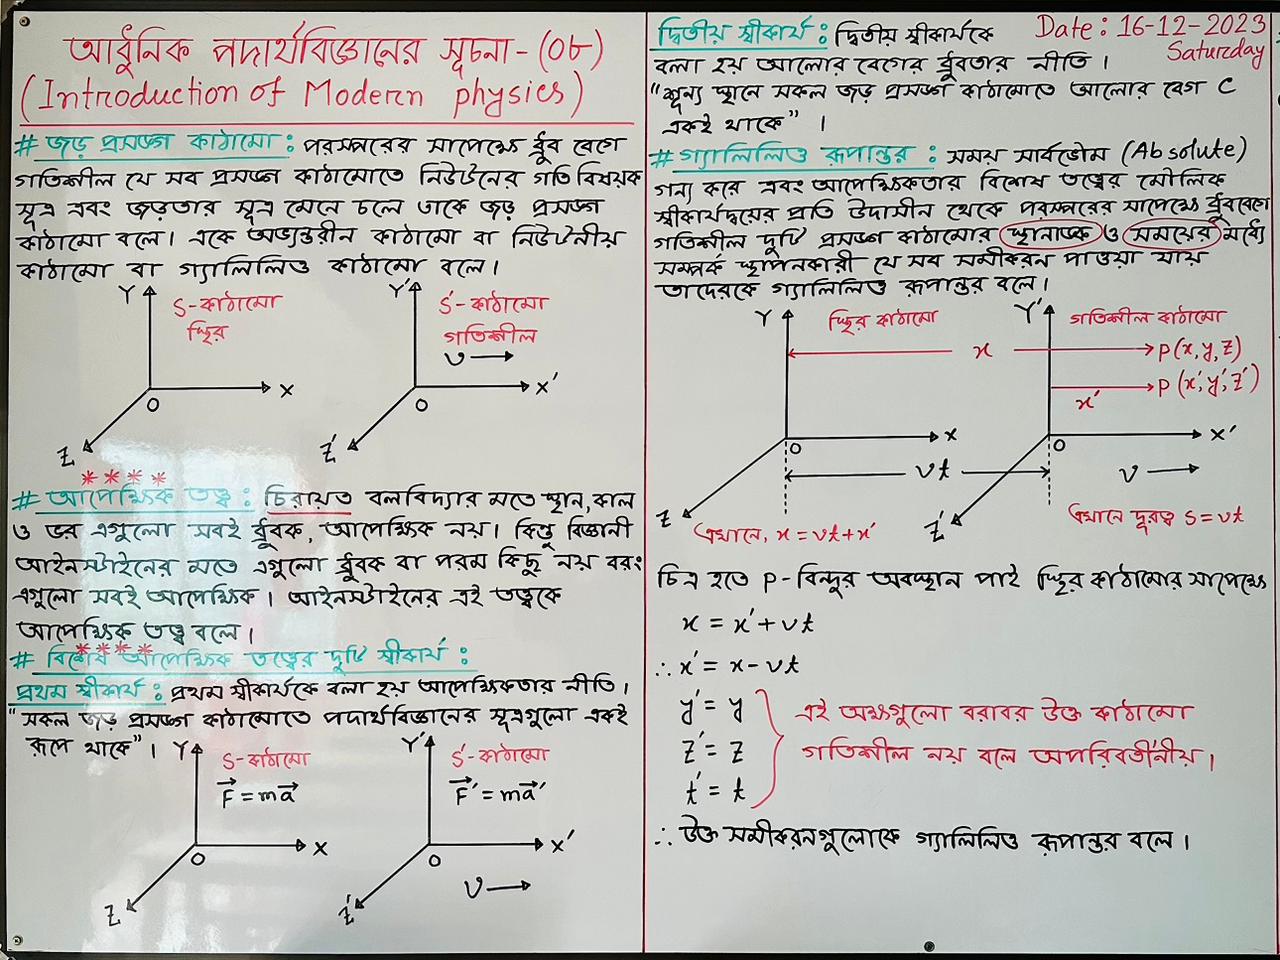 আধুনিক পদার্থবিজ্ঞানের সূচনা-(০৮)
(Introduction of Modern physics)
# জড় প্রসঙ্গ কাঠামো : পরস্পরের সাপেক্ষে ধ্রুব বেগে
গতিশীল যে সব প্রসঙ্গ কাঠামোতে নিউটনের গতি বিষয়ক
সূত্র এবং জড়তার সূত্র মেনে চলে তাকে জড় প্রসঙ্গ
কাঠামো বলে। একে অভ্যন্তরীন কাঠামো বা নিউটনীয়
কাঠামো বা গ্যালিলিও কাঠামো বলে।
Y S-কাঠামো
স্থির
O X
Z
Y′ S′-কাঠামো
গতিশীল
v
O X′
Z′
****
# আপেক্ষিক তত্ত্ব : চিরায়ত বলবিদ্যার মতে স্থান, কাল
ও ভর এগুলো সবই ধ্রুবক, আপেক্ষিক নয়। কিন্তু বিজ্ঞানী
আইনস্টাইনের মতে এগুলো ধ্রুবক বা পরম কিছু নয় বরং
এগুলো সবই আপেক্ষিক। আইনস্টাইনের এই তত্ত্বকে
আপেক্ষিক তত্ত্ব বলে।
****
# বিশেষ আপেক্ষিক তত্ত্বের দুটি স্বীকার্য :
প্রথম স্বীকার্য : প্রথম স্বীকার্যকে বলা হয় আপেক্ষিকতার নীতি।
"সকল জড় প্রসঙ্গ কাঠামোতে পদার্থবিজ্ঞানের সূত্রগুলো একই
রূপে থাকে"।
Y S-কাঠামো
F⃗ = ma⃗
O X
Z
Y′ S′-কাঠামো
F⃗′ = ma⃗′
O X′
Z′ v
Date : 16-12-2023
Saturday
দ্বিতীয় স্বীকার্য : দ্বিতীয় স্বীকার্যকে
বলা হয় আলোর বেগের ধ্রুবতার নীতি।
"শূন্য স্থানে সকল জড় প্রসঙ্গ কাঠামোতে আলোর বেগ C
একই থাকে"।
# গ্যালিলিও রূপান্তর : সময় সার্বভৌম (Absolute)
গন্য করে এবং আপেক্ষিকতার বিশেষ তত্ত্বের মৌলিক
স্বীকার্যদ্বয়ের প্রতি উদাসীন থেকে পরস্পরের সাপেক্ষে ধ্রুববেগে
গতিশীল দুটি প্রসঙ্গ কাঠামোর স্থানাঙ্ক ও সময়ের মধ্যে
সম্পর্ক স্থাপনকারী যে সব সমীকরন পাওয়া যায়
তাদেরকে গ্যালিলিও রূপান্তর বলে।
Y স্থির কাঠামো Y′ গতিশীল কাঠামো
x P(x, y, z)
x′ P(x′, y′, z′)
O X O X′
vt v
Z Z′
এখানে, x = vt+x′
এখানে দূরত্ব S = vt
চিত্র হতে P-বিন্দুর অবস্থান পাই স্থির কাঠামোর সাপেক্ষে
x = x′ + vt
∴ x′ = x - vt
y′ = y
z′ = z
t′ = t
এই অক্ষগুলো বরাবর উক্ত কাঠামো
গতিশীল নয় বলে অপরিবর্তনীয়।
∴ উক্ত সমীকরনগুলোকে গ্যালিলিও রূপান্তর বলে।